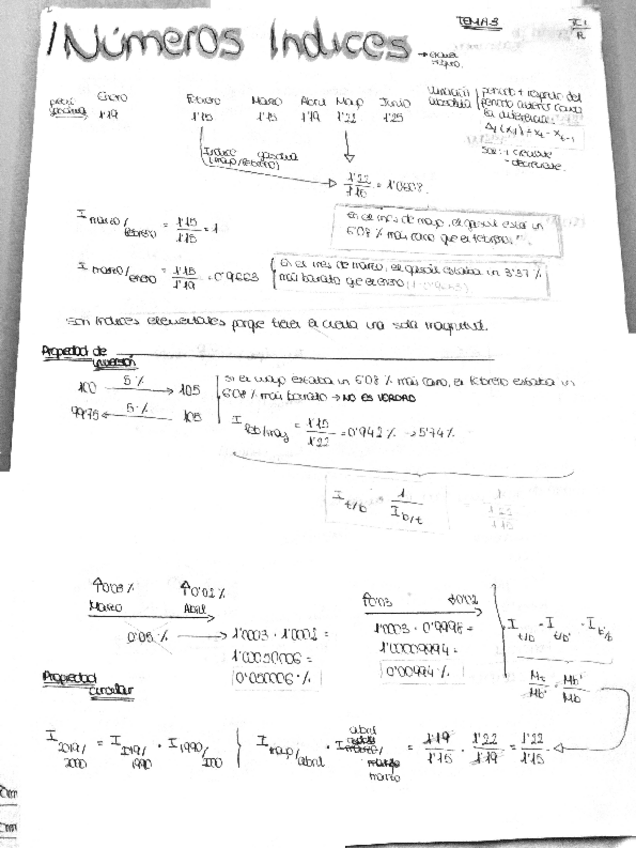 TEMA 3
1 Números Indices
Enero Febrero Marzo Abril Mayo Junio
precio gasolina 1'19 1'15 1'15 1'19 1'22 1'25
Variación absoluta periodo t respecto del
periodo anterior como
la diferencia:
Xt - Xt-1
+ creciente
- decreciente
Indice gasolina
(mayo/febrero)
1'22
I marzo/febrero = 1'15/1'15 = 1
En el mes de mayo, el gasoil estar un
6'08 % más caro que el febrero
I marzo/enero = 1'15/1'19 = 0'9663
En el mes de marzo, el gasoil estaba un 3'37 %
más barato que el enero
Son índices elementales porque tienen el cuenta una sola magnitud.
Propiedad de inversión
100 5% → 105
99'75 ← 5% 105
Si el mayo estaba un 6'08 % más caro, el febrero estaba un
6'08 % más barato → NO ES VERDAD
I feb/may = 1'15/1'22 = 0'942 % → 5'74 %
I t/b = 1/I b/t
↑0'03 % ↑0'02 %
Marzo Abril
0'05 % → 1'0003 · 1'0002 =
1'00050006 =
0'050006 %
↑0'03 ↓0'02
1'0003 · 0'9998 =
1'00009994 =
0'00994 %
I t/b = I t/b' · I b'/b
Mt/Mb' · Mb'/Mb
Propiedad circular
I 2019/2000 = I 2019/1990 · I 1990/2000
I mayo/abril · I abril/marzo = 1'19/1'15 · 1'22/1'19 = 1'22/1'15